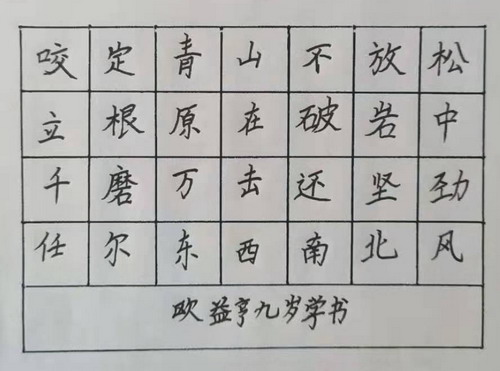 咬定青山不放松
立根原在破岩中
千磨万击还坚劲
任尔东西南北风
欧益亨九岁学书